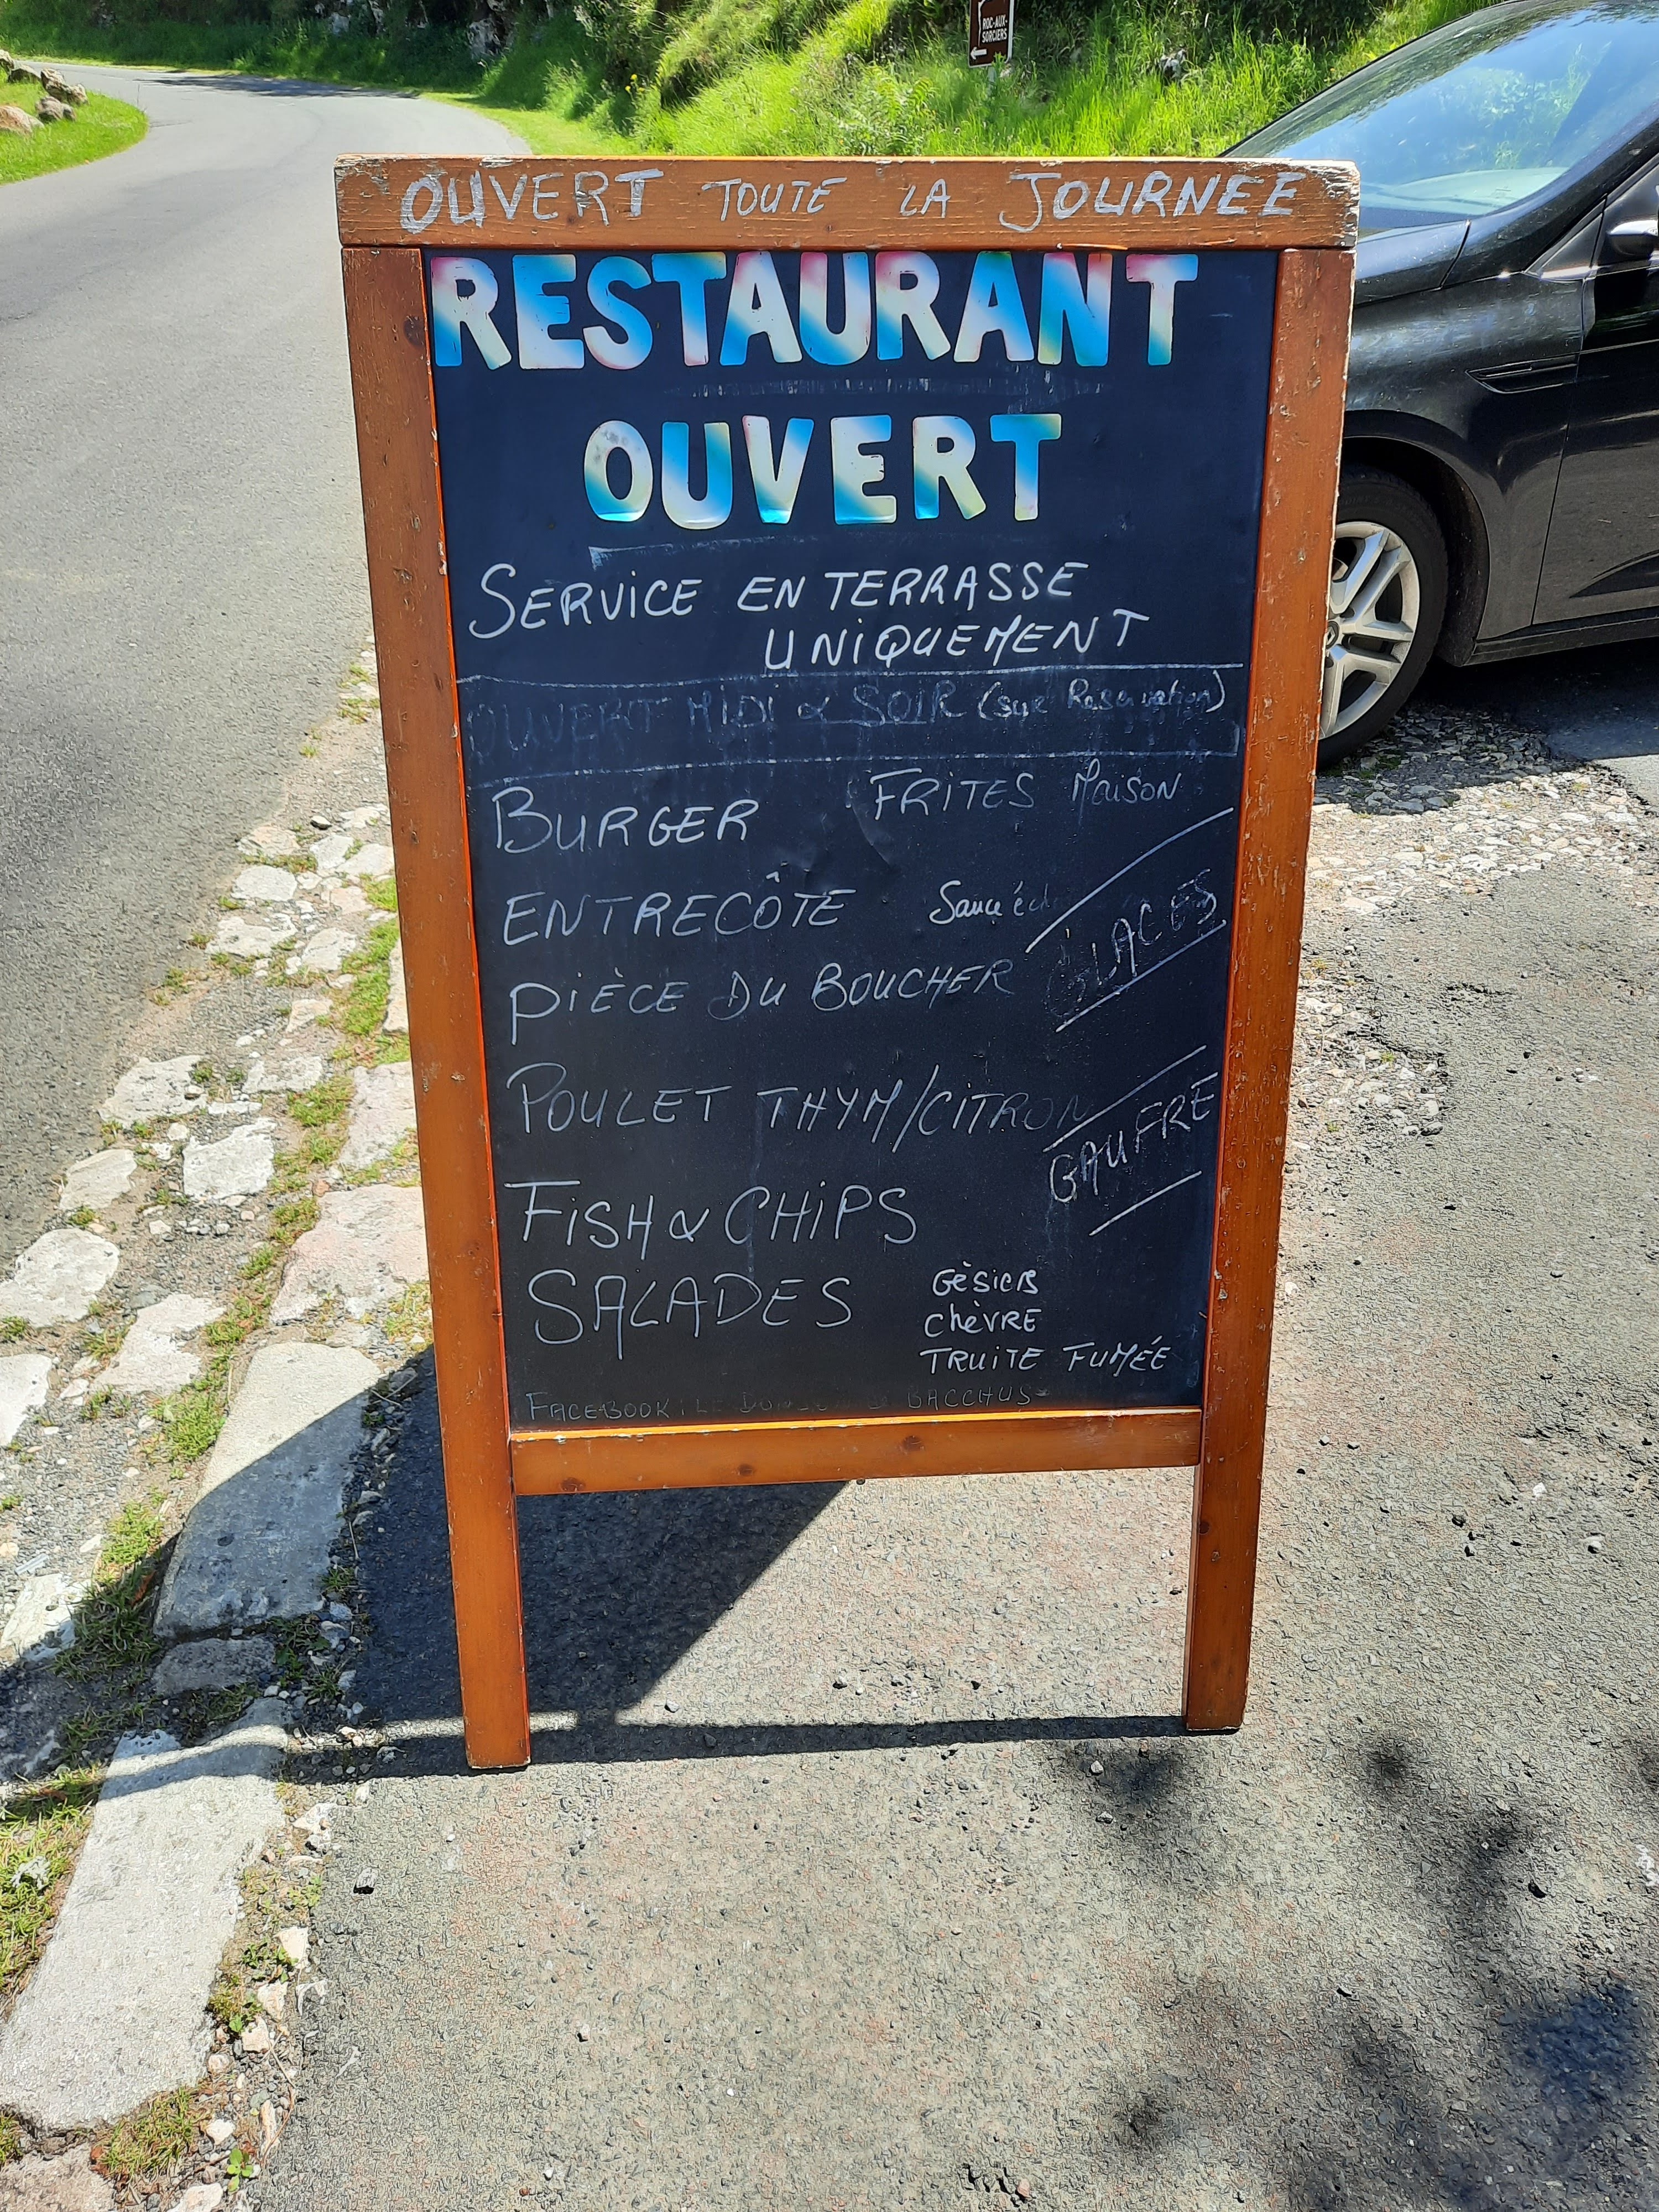 ROC-AUX-
SORCIERS
OUVERT TOUTE LA JOURNEE
RESTAURANT
OUVERT
SERVICE EN TERRASSE
UNIQUEMENT
OUVERT MIDI & SOIR (sur Reservation)
BURGER FRITES Maison
ENTRECÔTE Sauce
GLACES
PIÈCE DU BOUCHER
POULET THYM/CITRON
GAUFRE
FISH & CHIPS
SALADES GÈSIERS
CHÈVRE
TRUITE FUMÉE
FACEBOOK: BACCHUS